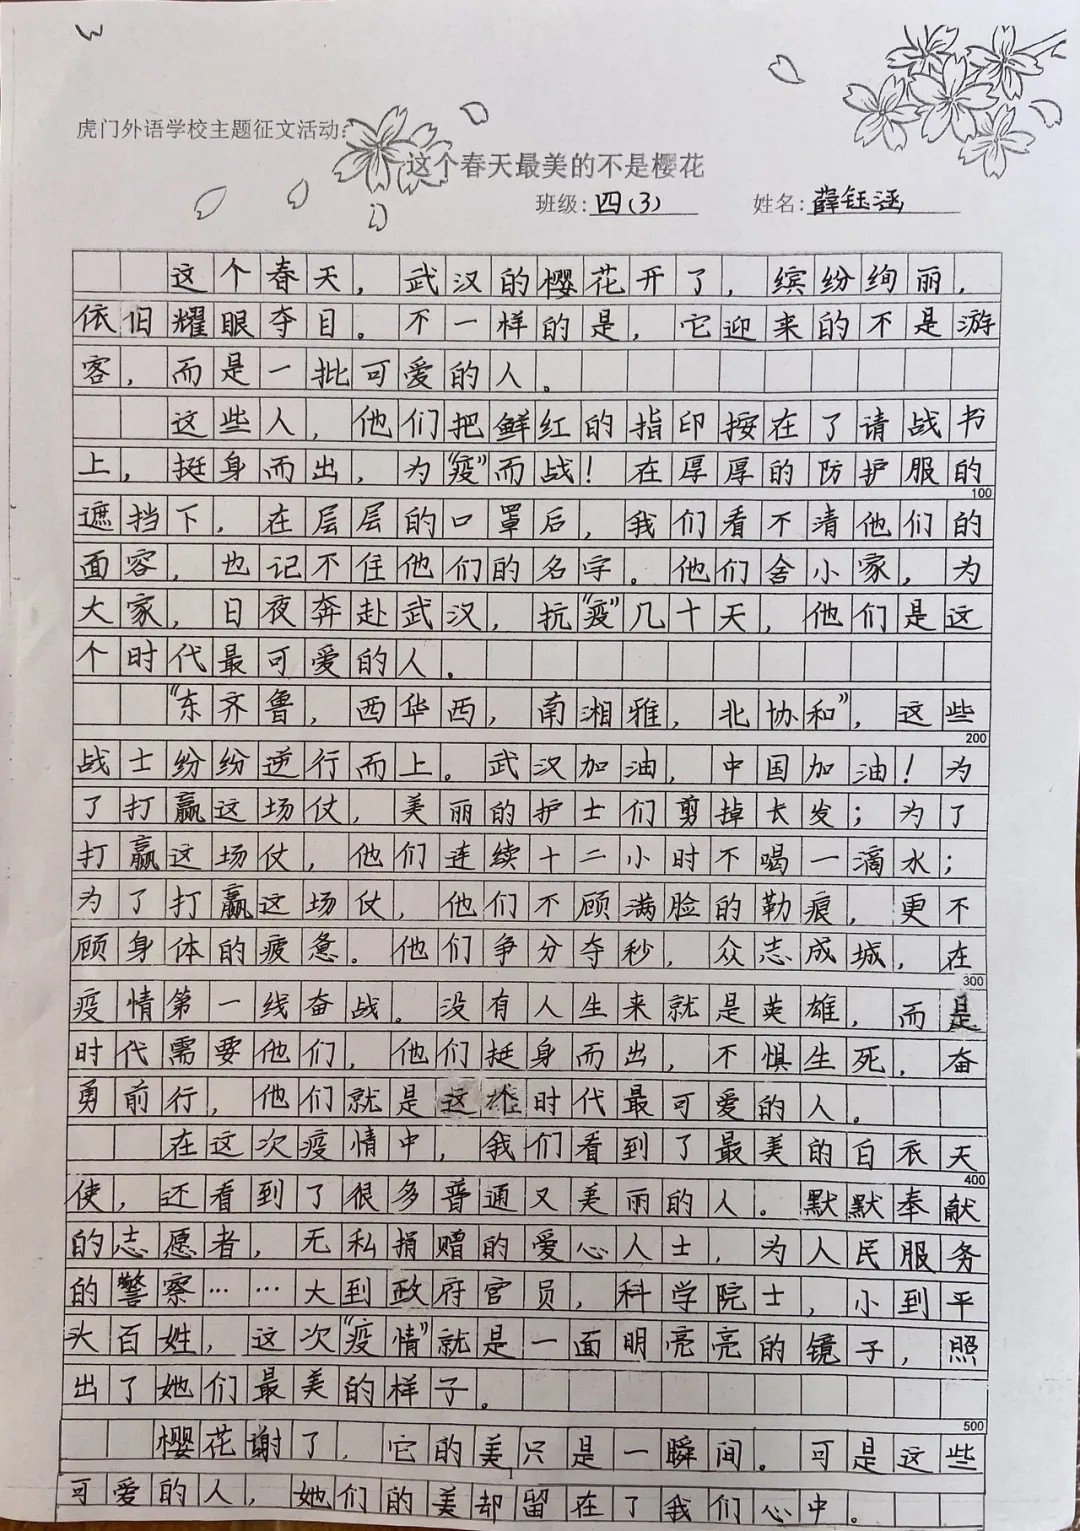 虎门外语学校主题征文活动:
这个春天最美的不是樱花
班级:四(3) 姓名:薛钰涵
这个春天，武汉的樱花开了，缤纷绚丽，
依旧耀眼夺目。不一样的是，它迎来的不是游
客，而是一批可爱的人。
这些人，他们把鲜红的指印按在了请战书
上，挺身而出，为“疫”而战！在厚厚的防护服的
100
遮挡下，在层层的口罩后，我们看不清他们的
面容，也记不住他们的名字。他们舍小家，为
大家，日夜奔赴武汉，抗“疫”几十天，他们是这
个时代最可爱的人。
“东齐鲁，西华西，南湘雅，北协和”，这些
200
战士纷纷逆行而上。武汉加油，中国加油！为
了打赢这场仗，美丽的护士们剪掉长发；为了
打赢这场仗，他们连续十二小时不喝一滴水；
为了打赢这场仗，他们不顾满脸的勒痕，更不
顾身体的疲惫。他们争分夺秒，众志成城，在
300
疫情第一线奋战。没有人生来就是英雄，而是
时代需要他们，他们挺身而出，不惧生死，奋
勇前行，他们就是这个时代最可爱的人。
在这次疫情中，我们看到了最美的白衣天
400
使，还看到了很多普通又美丽的人。默默奉献
的志愿者，无私捐赠的爱心人士，为人民服务
的警察……大到政府官员，科学院士，小到平
头百姓，这次“疫情”就是一面明亮亮的镜子，照
出了她们最美的样子。
500
樱花谢了，它的美只是一瞬间。可是这些
可爱的人，她们的美却留在了我们心中。